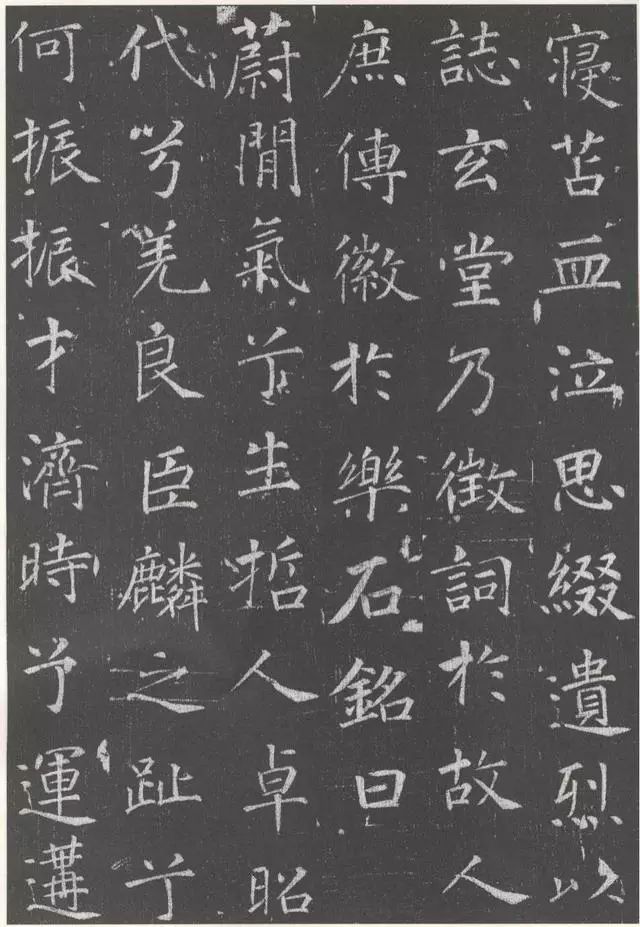 寝苫血泣思綴遺烈以
誌玄堂乃徴詞於故人
庶傳徽於樂石銘曰
蔚閒氣兮生哲人卓昭
代兮羌良臣麟之趾兮
何振振才濟時兮運遘